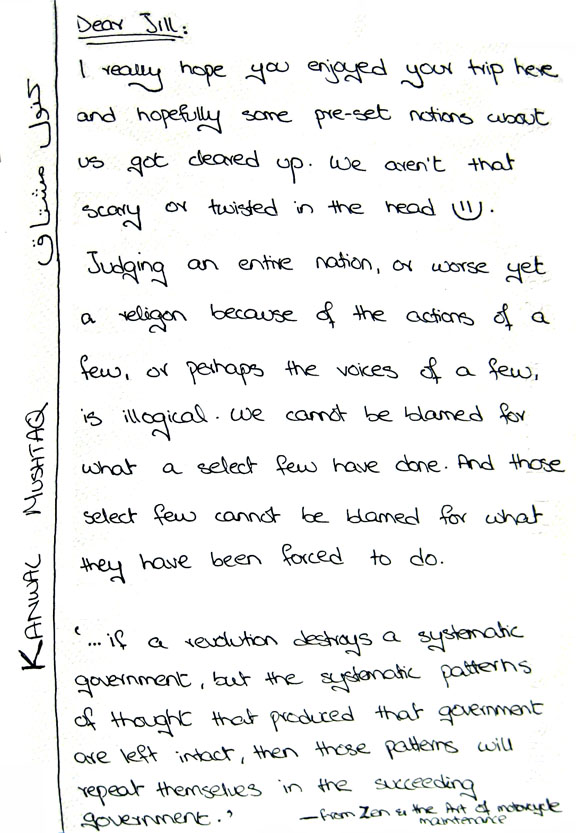 Dear Jill:
I really hope you enjoyed your trip here
and hopefully some pre-set notions about
us got cleared up. We aren't that
scary or twisted in the head =).
Judging an entire nation, or worse yet
a religon because of the actions of a
few, or perhaps the voices of a few,
is illogical. We cannot be blamed for
what a select few have done. And those
select few cannot be blamed for what
they have been forced to do.
'...if a revolution destroys a systematic
government, but the systematic patterns
of thought that produced that government
are left intact, then those patterns will
repeat themselves in the succeeding
government.'
—from Zen & the Art of motorcycle
maintenance
KANWAL MUSHTAQ
کنول مشتاق